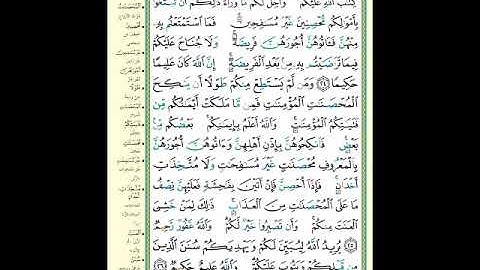 كِتَٰبَ ٱللَّهِ عَلَيْكُمْ ۚ وَأُحِلَّ لَكُم مَّا وَرَآءَ ذَٰلِكُمْ أَن تَبْتَغُوا۟
بِأَمْوَٰلِكُم مُّحْصِنِينَ غَيْرَ مُسَٰفِحِينَ ۚ فَمَا ٱسْتَمْتَعْتُم بِهِۦ
مِنْهُنَّ فَـَٔاتُوهُنَّ أُجُورَهُنَّ فَرِيضَةً ۚ وَلَا جُنَاحَ عَلَيْكُمْ
فِيمَا تَرَٰضَيْتُم بِهِۦ مِنۢ بَعْدِ ٱلْفَرِيضَةِ ۚ إِنَّ ٱللَّهَ كَانَ عَلِيمًا
حَكِيمًا ٢٤ وَمَن لَّمْ يَسْتَطِعْ مِنكُمْ طَوْلًا أَن يَنكِحَ
ٱلْمُحْصَنَٰتِ ٱلْمُؤْمِنَٰتِ فَمِن مَّا مَلَكَتْ أَيْمَٰنُكُم مِّن
فَتَيَٰتِكُمُ ٱلْمُؤْمِنَٰتِ ۚ وَٱللَّهُ أَعْلَمُ بِإِيمَٰنِكُم ۚ بَعْضُكُم مِّنۢ
بَعْضٍ ۚ فَٱنكِحُوهُنَّ بِإِذْنِ أَهْلِهِنَّ وَءَاتُوهُنَّ أُجُورَهُنَّ
بِٱلْمَعْرُوفِ مُحْصَنَٰتٍ غَيْرَ مُسَٰفِحَٰتٍ وَلَا مُتَّخِذَٰتِ
أَخْدَانٍ ۚ فَإِذَآ أُحْصِنَّ فَإِنْ أَتَيْنَ بِفَٰحِشَةٍ فَعَلَيْهِنَّ نِصْفُ
مَا عَلَى ٱلْمُحْصَنَٰتِ مِنَ ٱلْعَذَابِ ۚ ذَٰلِكَ لِمَنْ خَشِىَ
ٱلْعَنَتَ مِنكُمْ ۚ وَأَن تَصْبِرُوا۟ خَيْرٌ لَّكُمْ ۗ وَٱللَّهُ غَفُورٌ رَّحِيمٌ
٢٥ يُرِيدُ ٱللَّهُ لِيُبَيِّنَ لَكُمْ وَيَهْدِيَكُمْ سُنَنَ ٱلَّذِينَ
مِن قَبْلِكُمْ وَيَتُوبَ عَلَيْكُمْ ۗ وَٱللَّهُ عَلِيمٌ حَكِيمٌ ٢٦